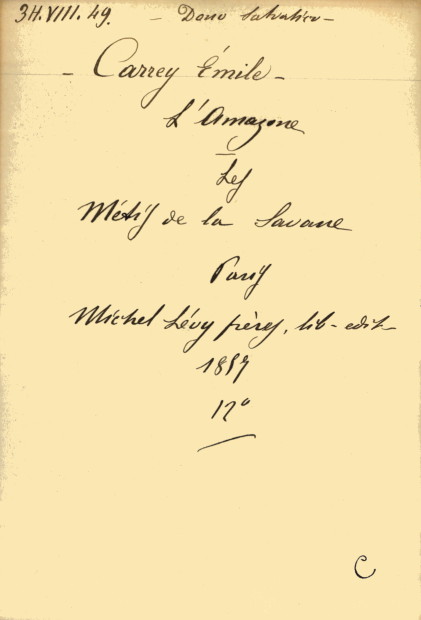 34.VIII.49. - Dono Salvatico -
- Carrey Émile -
L'Amazone
-
Les
Métis de la Savane
Paris
Michel Lévy frères, lib - edit -
1857
12°
C